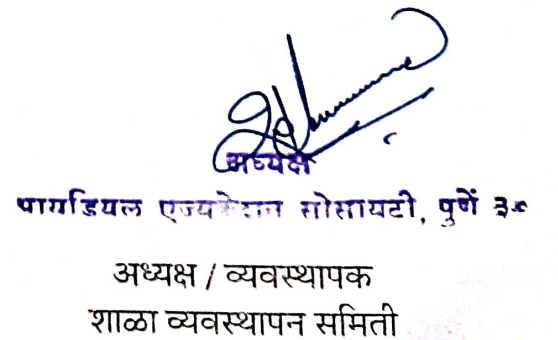 अध्यक्ष
पायर्डियल एज्युकेशन सोसायटी, पुणें ३०
अध्यक्ष / व्यवस्थापक
शाळा व्यवस्थापन समिती